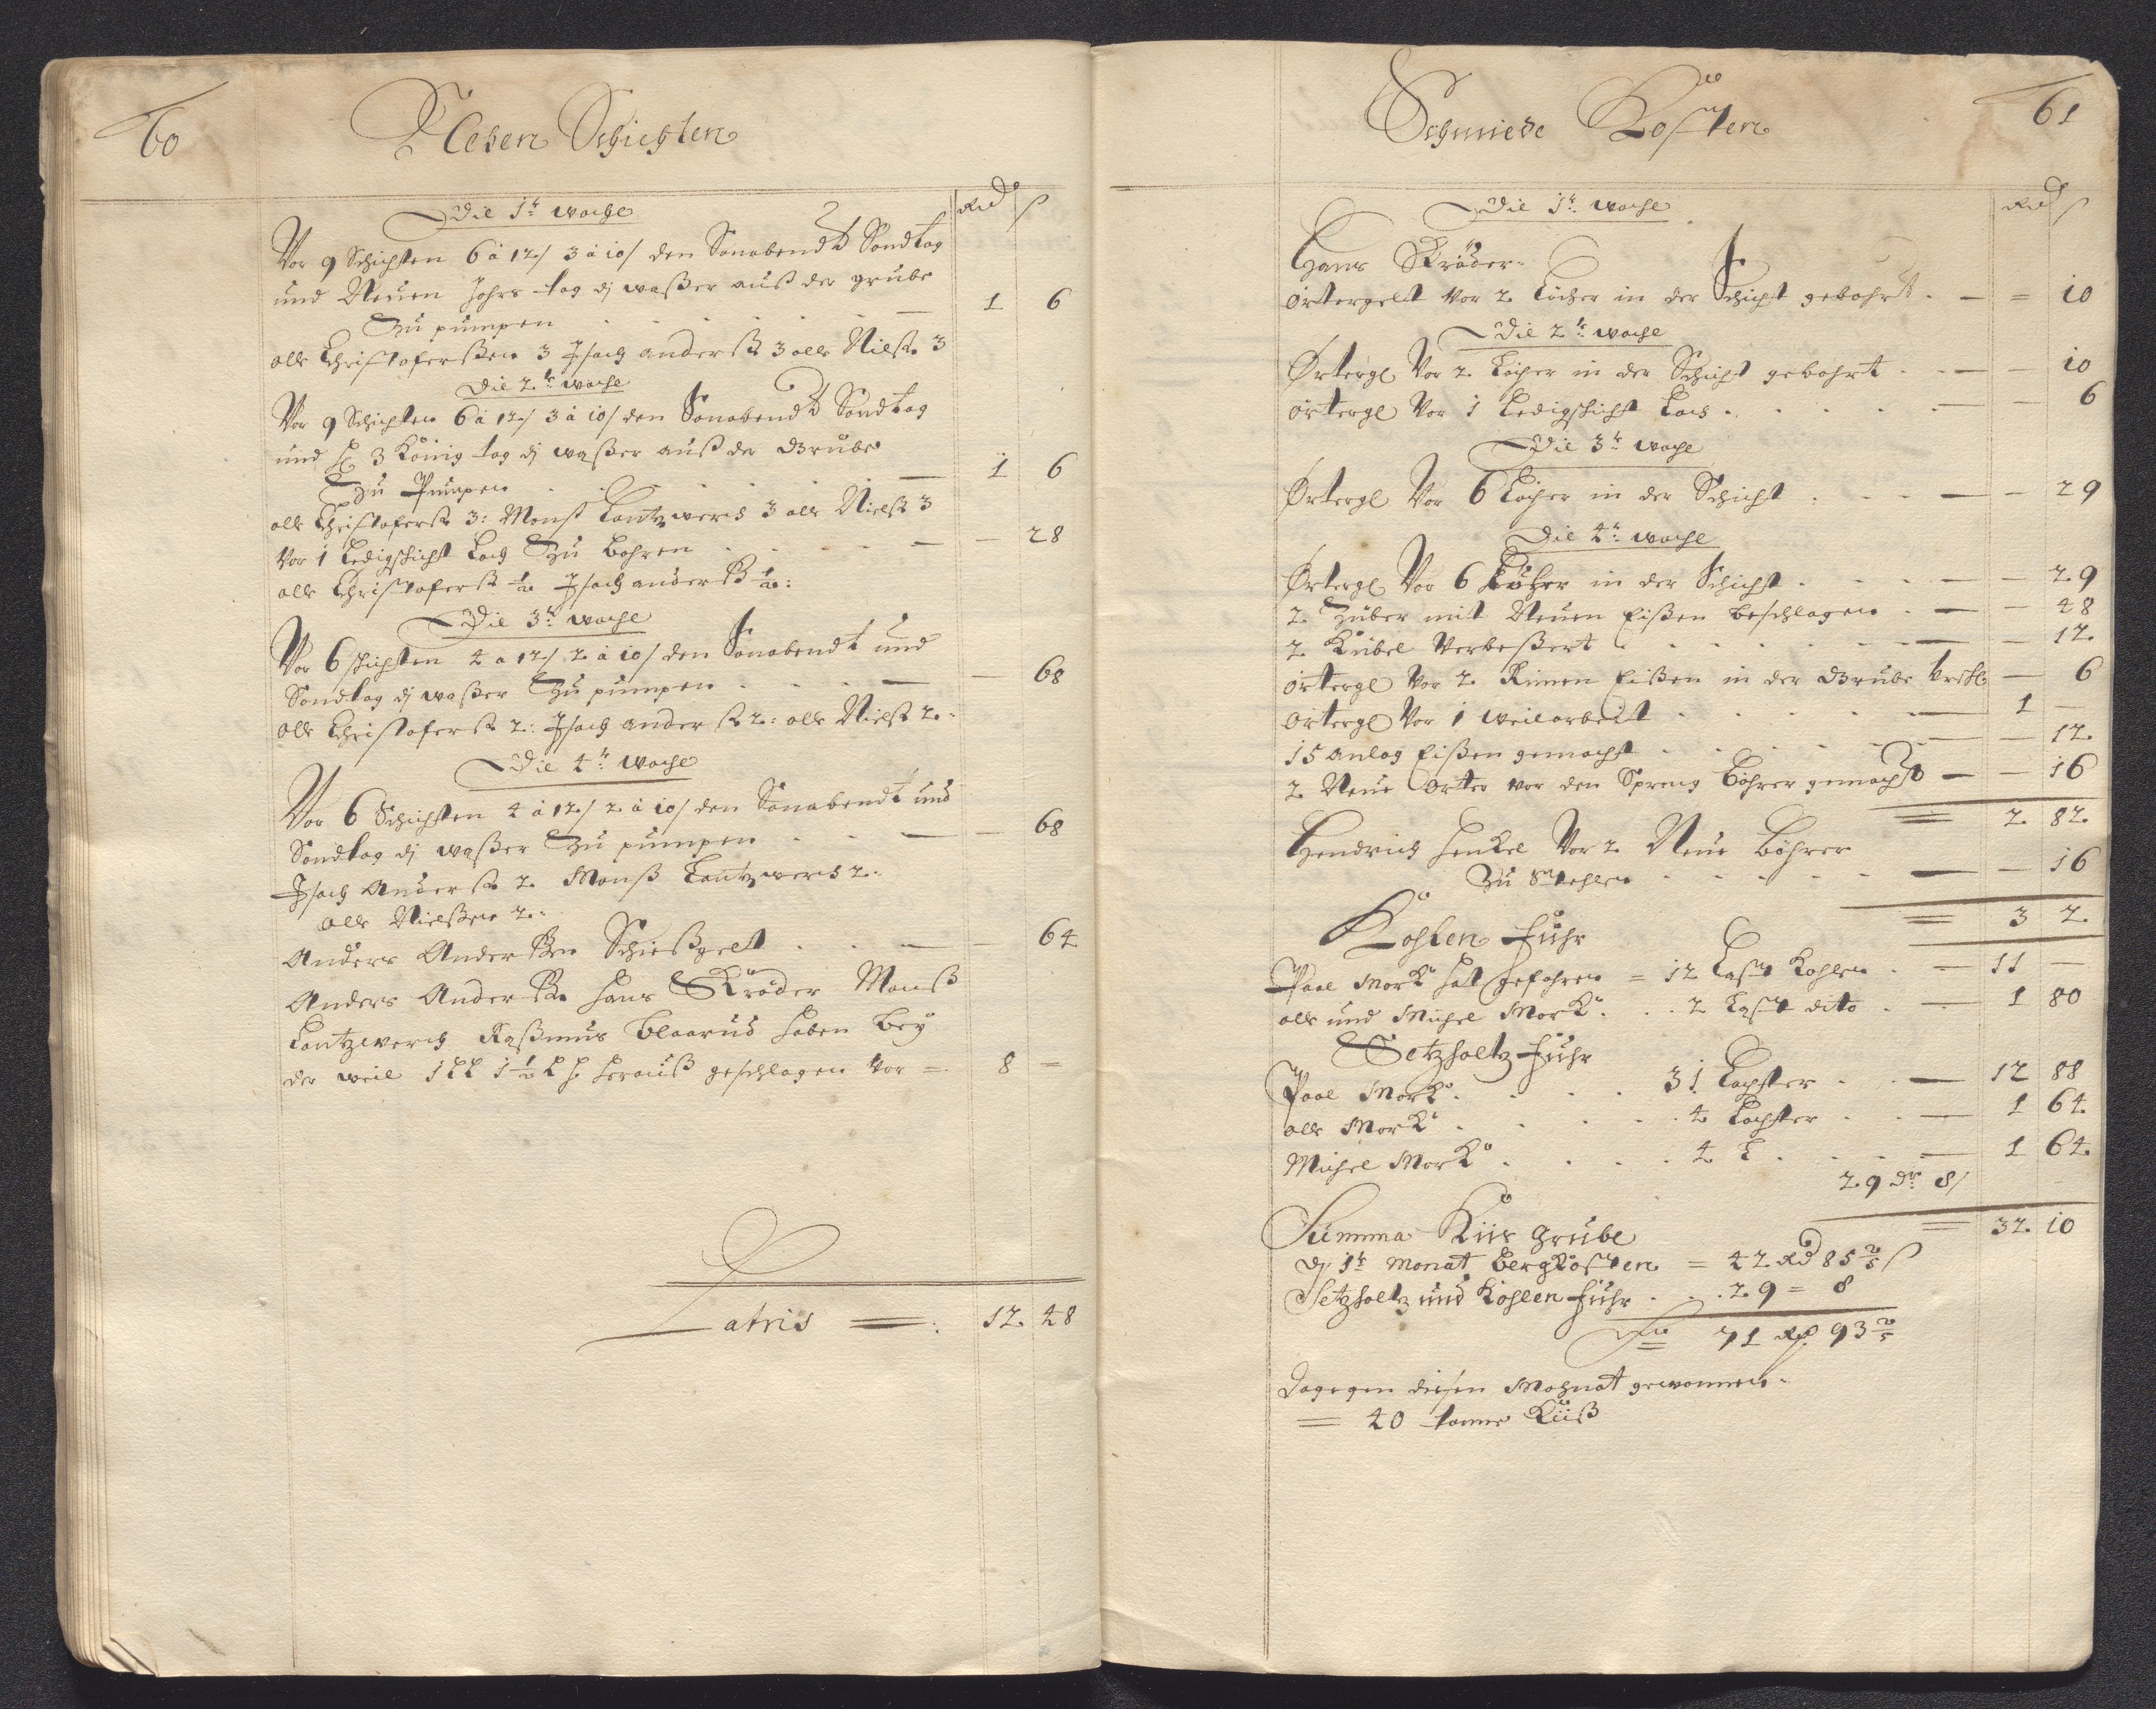 60
Neben Schichten
Rd ß
Die 1te woche
Vor 9 Schichten 6 à 12/ 3 à 10/ den Sonabendt Sondtag
und Neuen Jahrs tag dz waßer auß der grube
Zu pumpen . . . . . — 1 6
olle Christoferßen 3 Isach anderß 3 olle Nielß 3
Die 2te woche
Vor 9 Schichten 6 à 12/ 3 à 10/ den Sonabendt Sondtag
und H 3 König tag dz waßer auß der Grube
Zu Pumpen . . . . . — 1 6
olle Christoferß 3: Monß Lantzwerch 3 olle Nielß 3
Vor 1 Ledigschicht Loch Zu bohren . . . . — — 28
olle Christoferß ½ Isach anderß ½:
Die 3te woche
Vor 6 schichten 4 a 12/ 2 à 10/ den Sonabendt und
Sondtag dz waßer Zu pumpen . . . — — 68
olle Christoferß 2: Isach anderß 2: olle Nielß 2:
Die 4te woche
Vor 6 Schichten 4 à 12/ 2 à 10/ den Sonabendt und
Sondtag dz waßer Zu pumpen . . — — 68
Isach Anderß 2 Monß Lantzwerch 2:
olle Nielßen 2:
Anders Anderßen Schießgelt . . — — 64
Anders Anderßen Hans Kröder Monß
Lantzwerch Raßmus Blaarud haben bey
der weil 1 LL 1½ L herauß geschlagen vor = 8 =
Latris = : 12 48
61
Schmiede Kosten
Rd ß
Die 1te woche
Hans Kröder
örtergelt vor 2 Löcher in der Schicht gebohrt . — = 10
Die 2te woche
Örtergl Vor 2 Löcher in der Schicht gebohrt . . — — 10
örtergl Vor 1 Ledigschicht Loch . . . . . — — 6
Die 3te woche
Örtergl Vor 6 Löcher in der Schicht . . . — — 29
Die 4te woche
Örtergl Vor 6 Löcher in der Schicht . . . — — 29
2 Züber mit Neuen Eißen beschlagen . — — 48
2 Kübel Verbeßert . . . . . . — — 12
örtergl Vor 2 Rinnen Eißen in der Grube — 6
örtergl Vor 1 weilarbeit . . . . . — 1 —
15 anlag Eißen gemacht . . . . . — — 12
2 Neue Örter vor den Spreng bohrer gemacht — — 16
= 2 82
Hendrich Henkel Vor 2 Neue böhrer
Zu Stehlen . . . . . — — 16
= 3 2
Kohlen fuhr
Paal Mork hat gefahren = 12 Last Kohlen . — 11 —
olle und Michel Mork . . . 2 Last dito . — 1 80
Setzholtz fuhr
Paal Mork . . . . 31 Lachter . . — 12 88
olle Mork . . . . 4 Lachter . . — 1 64
Michel Mork . . . . 4 L . . . — 1 64
29 dr 8/
= 32 10
Summa Kiis Grube
dz 1te Monat bergkosten = 42 Rd 85 ⅖ ß
Setzholtz und Kohlen fuhr . . . 29 = 8
71 Rd 93 ⅖
Dagegen diesen Mohnat gewonnen
= 40 tonne Kiiß